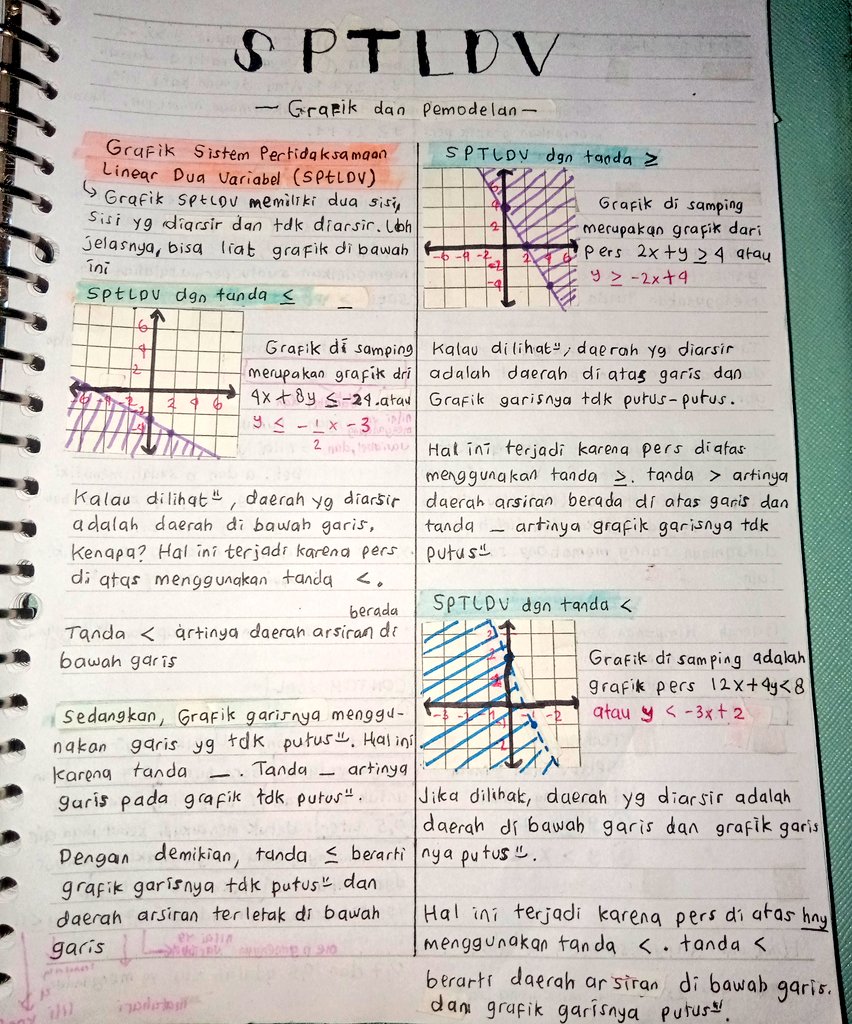 SPTLDV
— Grafik dan Pemodelan —
Grafik Sistem Pertidaksamaan
Linear Dua Variabel (SPtLDV)
↳ Grafik SPtLDV memiliki dua sisi,
sisi yg diarsir dan tdk diarsir. Lbh
jelasnya, bisa liat grafik di bawah
ini
SPtLDV dgn tanda ≤
6
4
2
-6 -4 -2 2 4 6
-2
-4
Grafik di samping
merupakan grafik dri
4x + 8y ≤ -24 .atau
y < - 1 x - 3
2
Kalau dilihat", daerah yg diarsir
adalah daerah di bawah garis.
Kenapa? Hal ini terjadi karena pers
di atas menggunakan tanda <.
berada
Tanda < artinya daerah arsiran di
bawah garis
Sedangkan, Grafik garisnya menggu-
nakan garis yg tdk putus". Hal ini
karena tanda _ . Tanda _ artinya
garis pada grafik tdk putus".
Dengan demikian, tanda ≤ berarti
grafik garisnya tdk putus" dan
daerah arsiran terletak di bawah
garis
SPTLDV dgn tanda ≥
6
4
2
-6 -4 -2 2 4 6
-2
-4
Grafik di samping
merupakan grafik dari
Pers 2x + y ≥ 4 atau
y ≥ -2x+4
Kalau dilihat", daerah yg diarsir
adalah daerah di atas garis dan
Grafik garisnya tdk putus-putus.
Hal ini terjadi karena pers diatas
menggunakan tanda ≥. tanda > artinya
daerah arsiran berada di atas garis dan
tanda _ artinya grafik garisnya tdk
putus"
SPTLDV dgn tanda <
Grafik di samping adalah
grafik pers 12x + 4y < 8
atau y < -3x + 2
Jika dilihat, daerah yg diarsir adalah
daerah di bawah garis dan grafik garis
nya putus".
Hal ini terjadi karena pers di atas hny
menggunakan tanda < . tanda <
berarti daerah arsiran di bawah garis.
dan grafik garisnya putus".